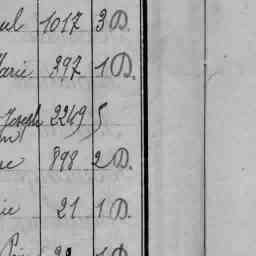 ul 1017 3 D.
Marie 397 1 D.
Joseph 2249 5
898 2 D.
ie 21 1 D.
1 D.